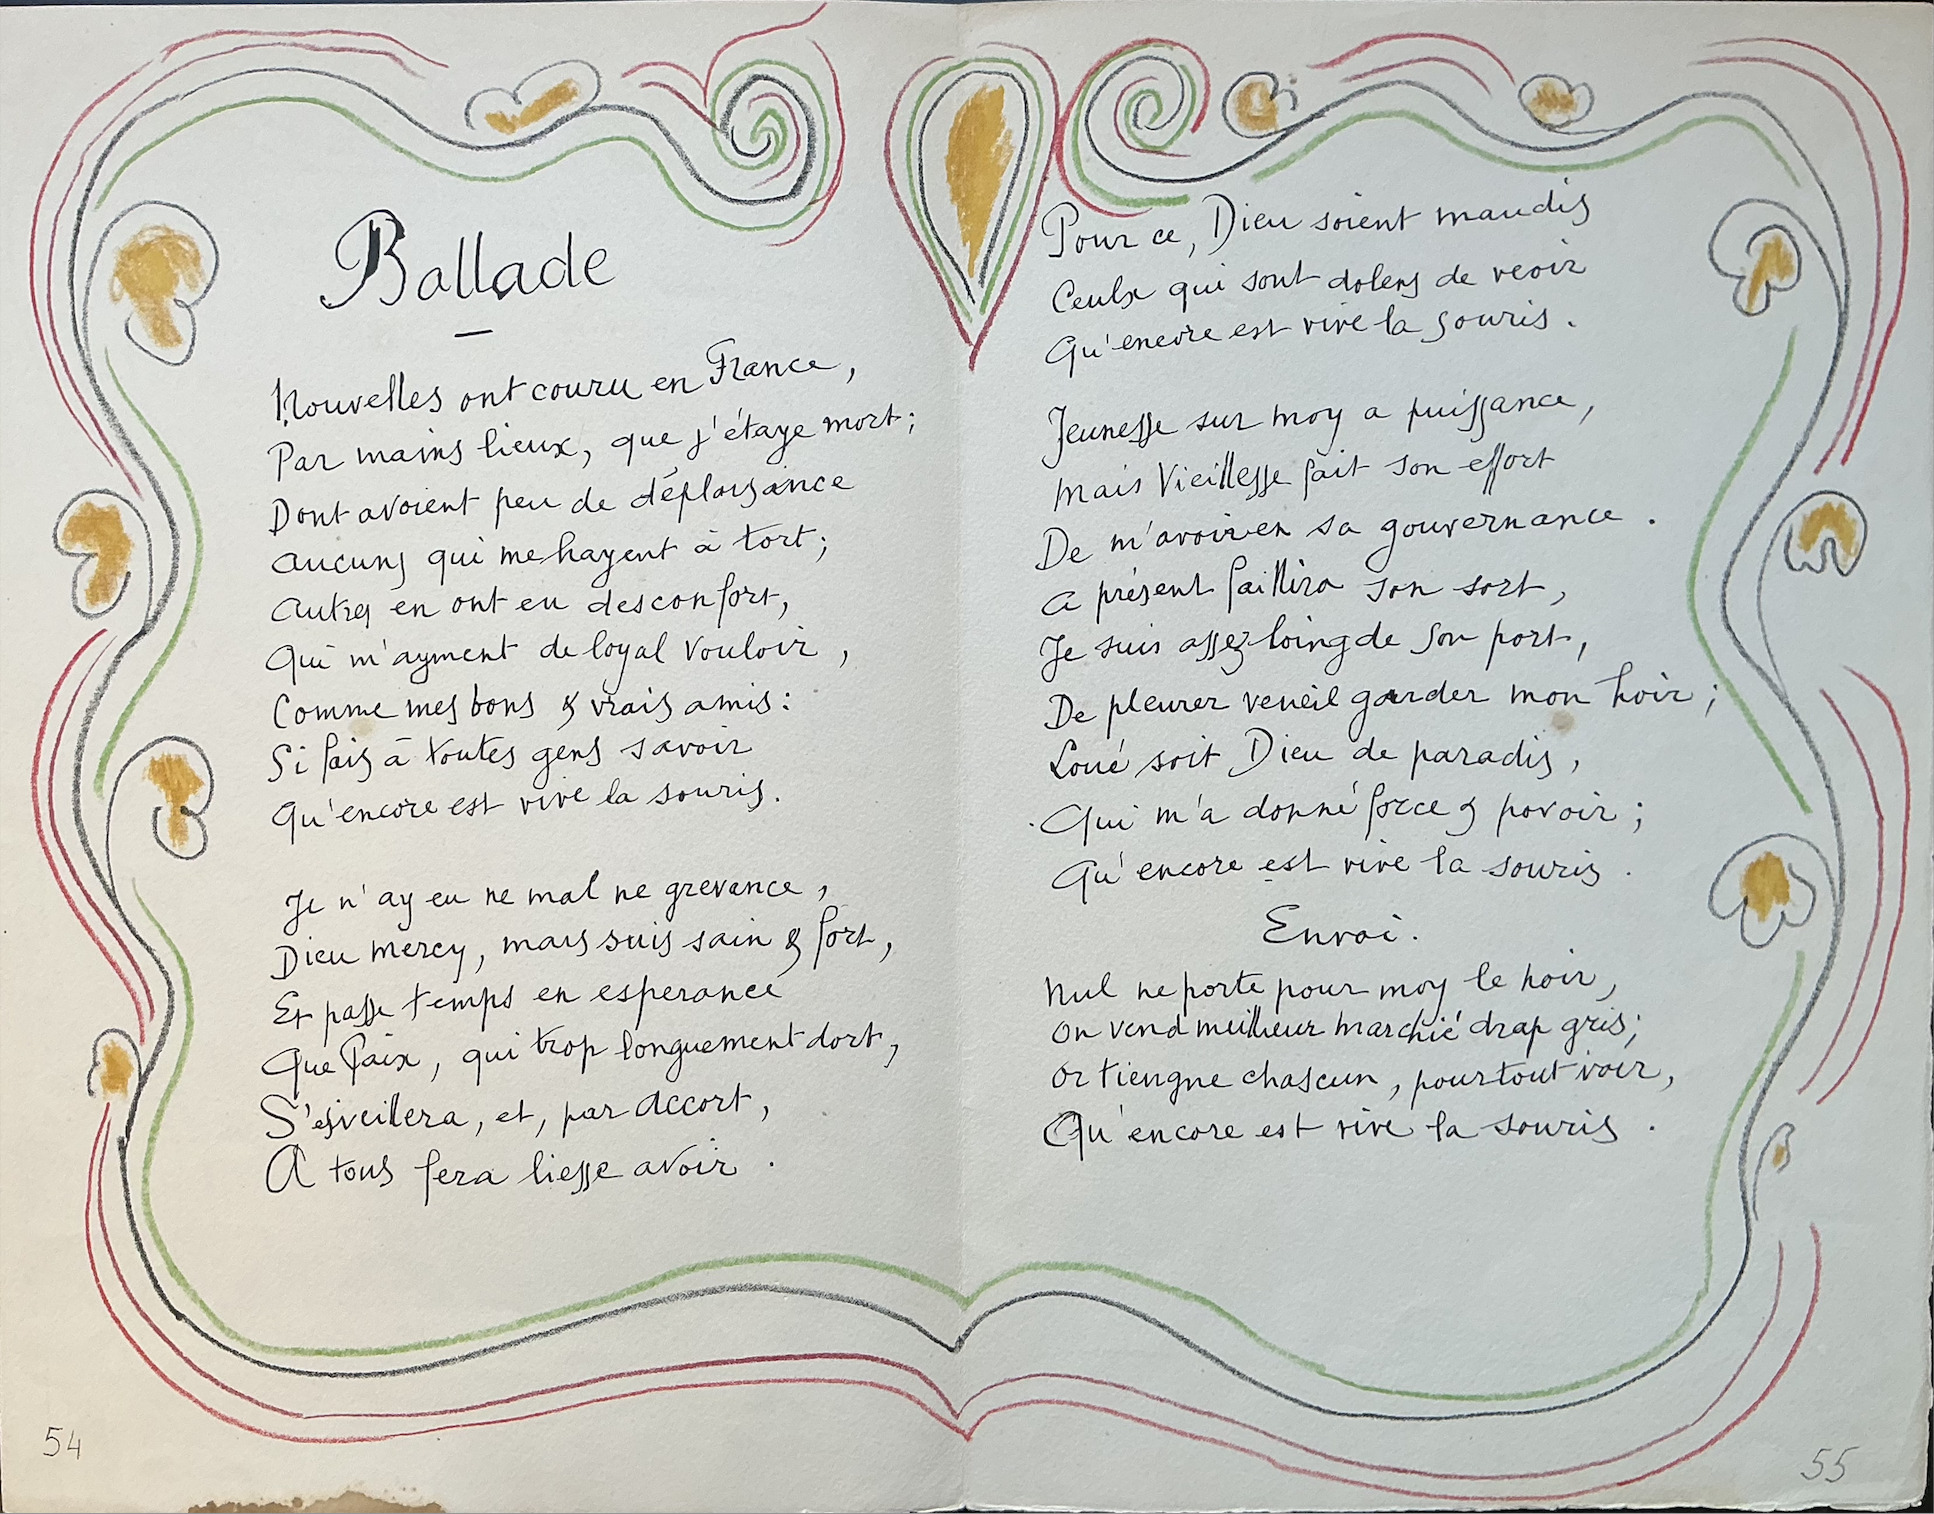 Ballade
Nouvelles ont couru en France,
Par mains lieux, que j'étaye mort;
Dont avoient peu de déplaisance
Aucuns qui me hayent à tort;
Autres en ont eu desconfort,
Qui m'ayment de loyal vouloir,
Comme mes bons & vrais amis:
Si fais à toutes gens savoir
Qu'encore est vive la souris.
Je n'ay eu ne mal ne grevance,
Dieu mercy, mais suis sain & fort,
Et passe temps en esperance
Que Paix, qui trop longuement dort,
S'esveillera, et, par accort,
A tous fera liesse avoir.
54
Pour ce, Dieu soient maudis
Ceulx qui sont dolens de veoir
Qu'encore est vive la souris.
Jeunesse sur moy a puissance,
Mais Vieillesse fait son effort
De m'avoir en sa gouvernance.
A présent faillira son sort,
Je suis assez loing de son port,
De pleurer veueil garder mon hoir;
Loué soit Dieu de paradis,
Qui m'a donné force & povoir;
Qu'encore est vive la souris.
Envoi.
Nul ne porte pour moy le noir,
On vend meilleur marchié drap gris;
Or tiengne chascun, pour tout voir,
Qu'encore est vive la souris.
55